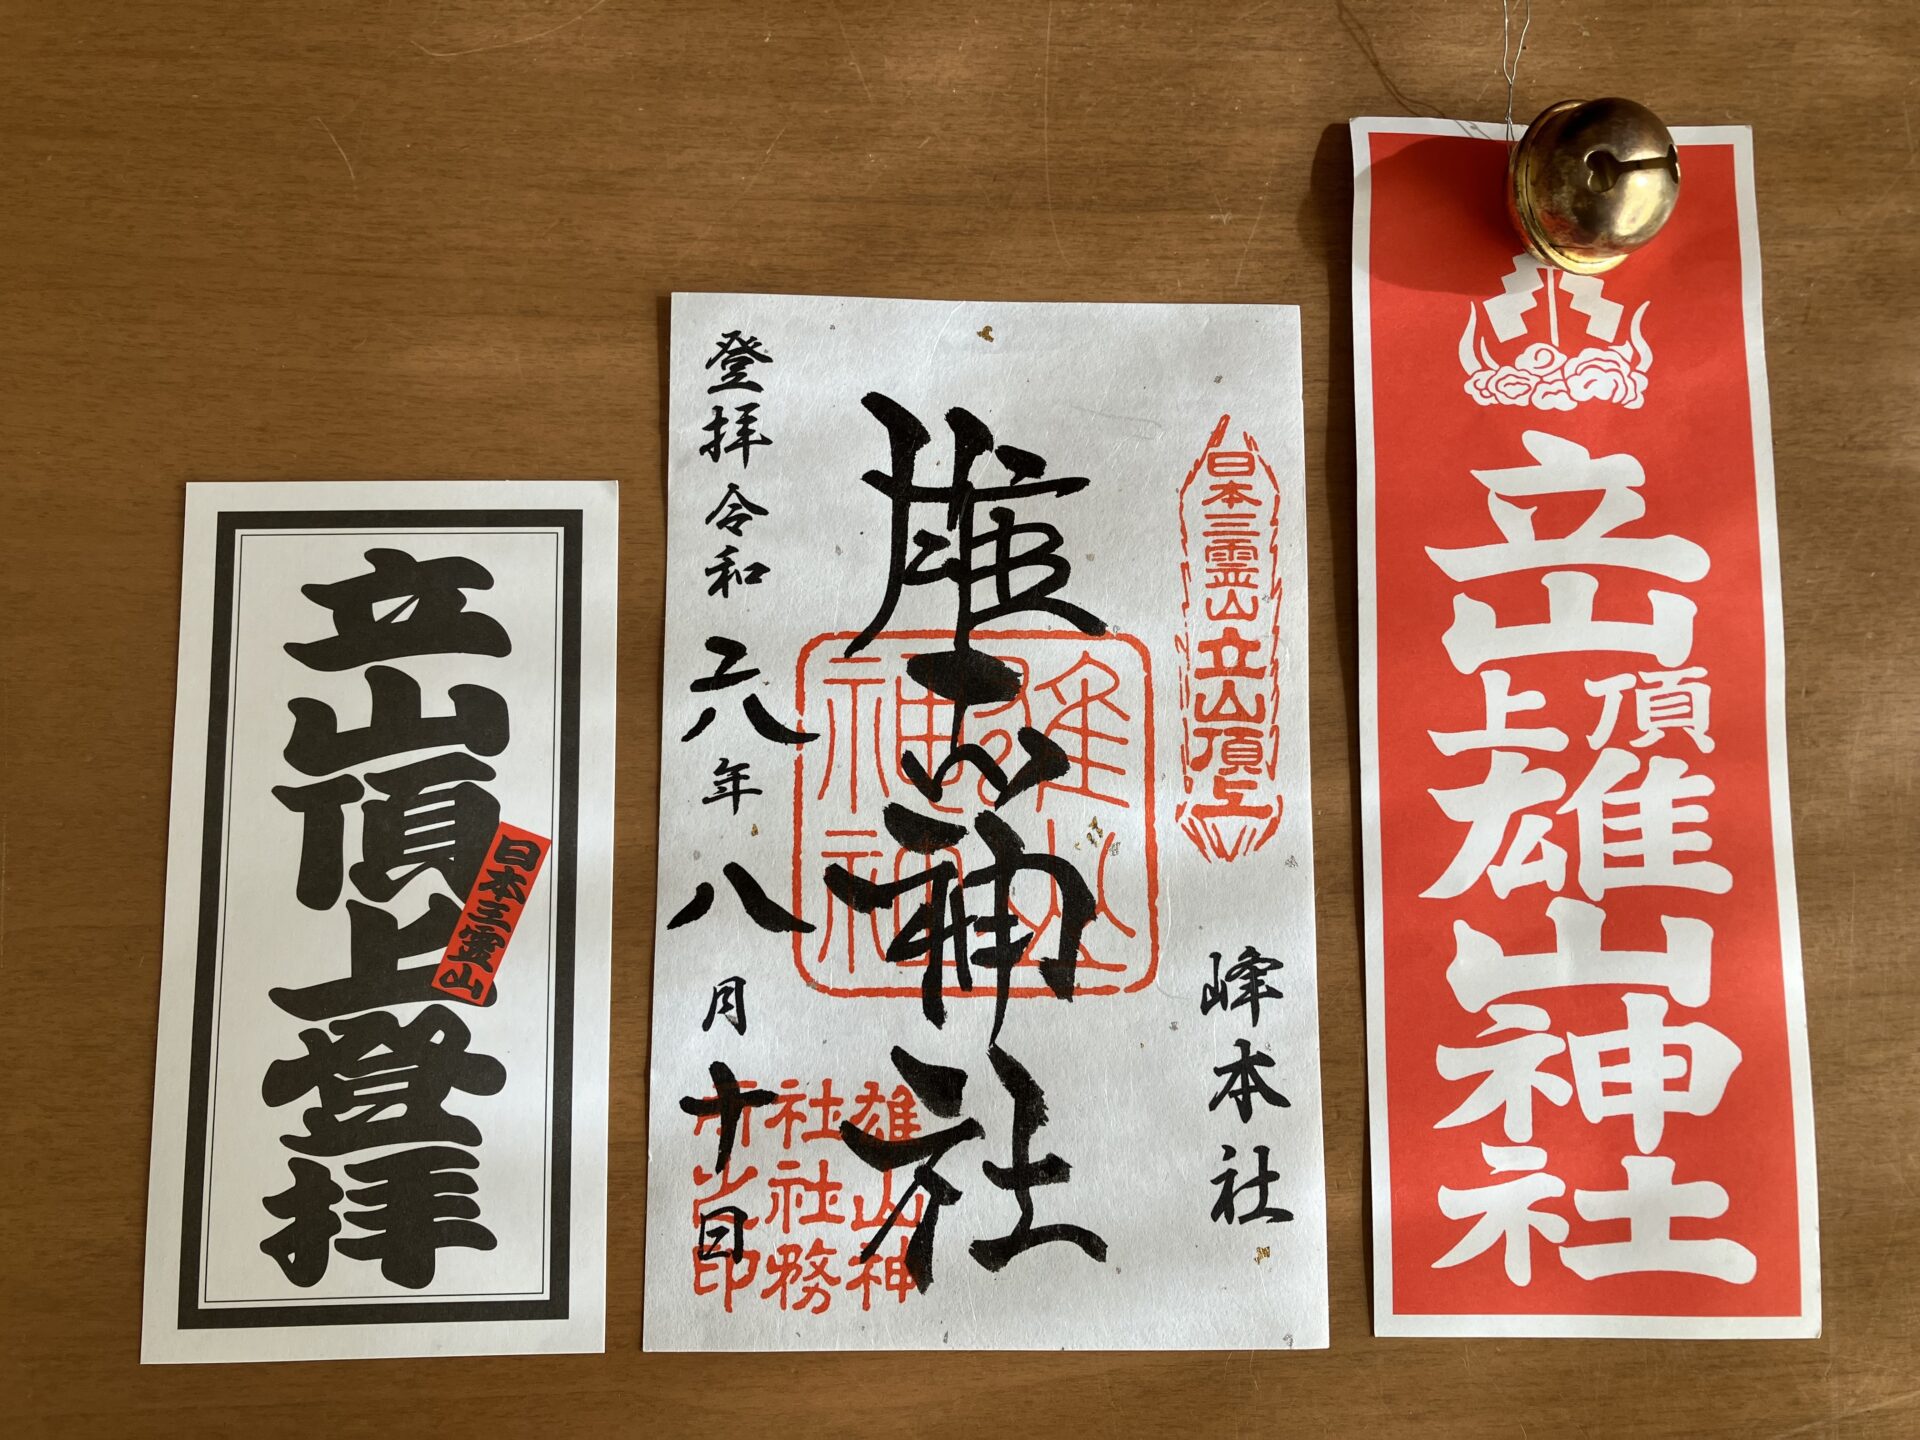 立山頂上登拝
日本三霊山
日本三霊山立山頂上
峰本社
雄山神社
雄山
神社
登拝 令和六年八月十日
雄山神
社社務
所之印
立山頂上雄山神社